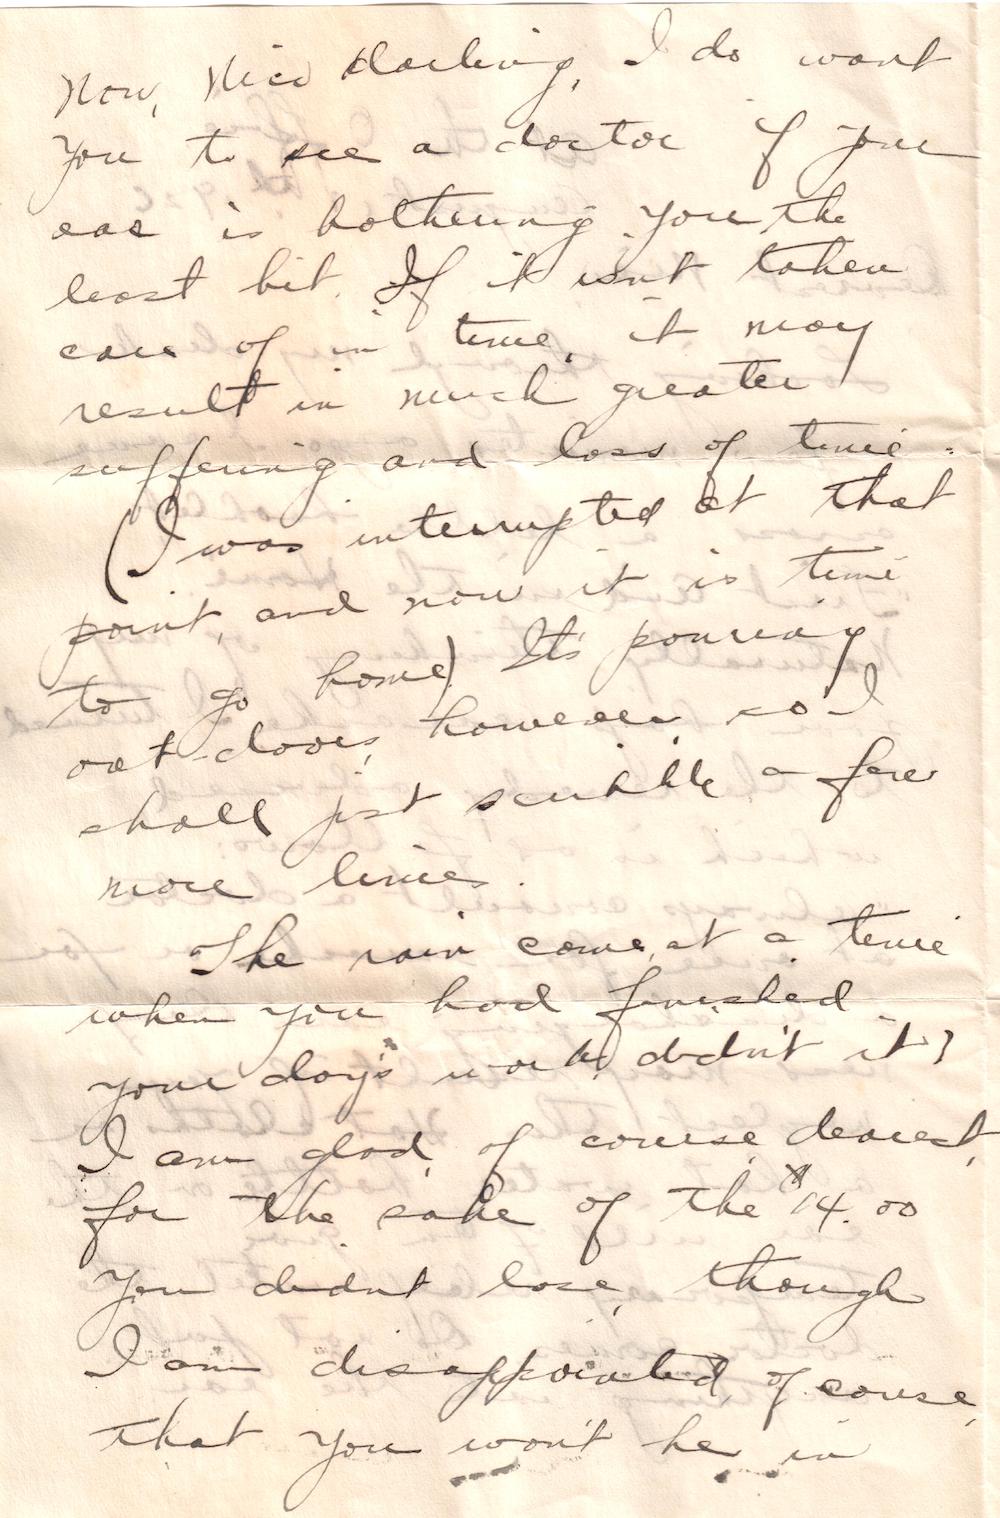 Now, Nico darling, I do want
you to see a doctor if your
ear is bothering you the
least bit. If it isn't taken
care of in time, it may
result in much greater
suffering and loss of time.
(I was interrupted at that
point, and now it is time
to go home). It's pouring
out-doors, however, so I
shall just scribble a few
more lines.
The rain came at a time
when you had finished
your day's work, didn't it?
I am glad, of course, dearest,
for the sake of the $14.00
you didn't lose, though
I am disappointed, of course,
that you won't be in